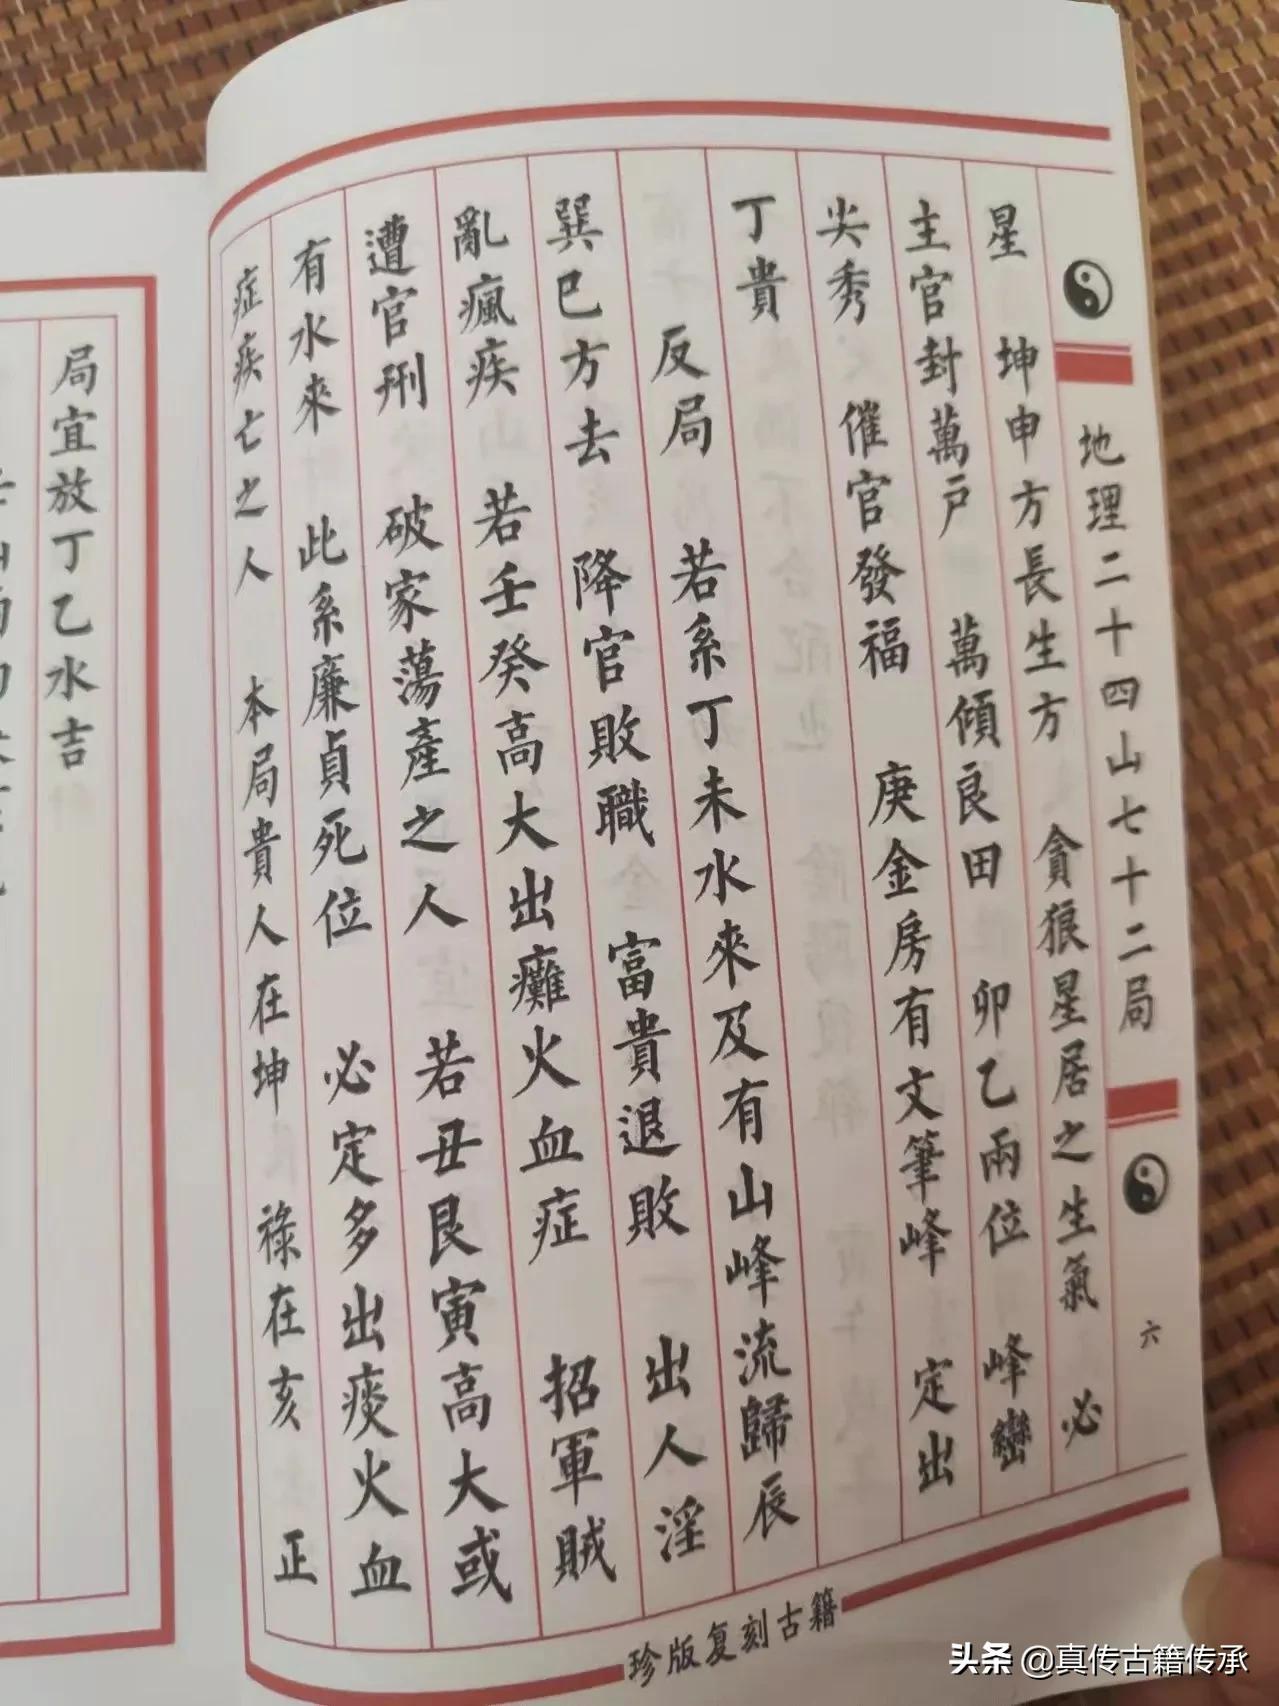 地理二十四山七十二局
六
星 坤申方長生方 貪狼星居之生氣 必
主官封萬戶 萬傾良田 卯乙兩位 峰巒
尖秀 催官發福 庚金房有文筆峰 定出
丁貴
反局 若系丁未水來及有山峰流歸辰
巽巳方去 降官敗職 富貴退敗 出人淫
亂瘋疾 若壬癸高大出癱火血症 招軍賊
遭官刑 破家蕩產之人 若丑艮寅高大或
有水來 此系廉貞死位 必定多出痰火血
症疾亡之人 本局貴人在坤 祿在亥 正
珍版复刻古籍
局宜放丁乙水吉
头条 @真传古籍传承